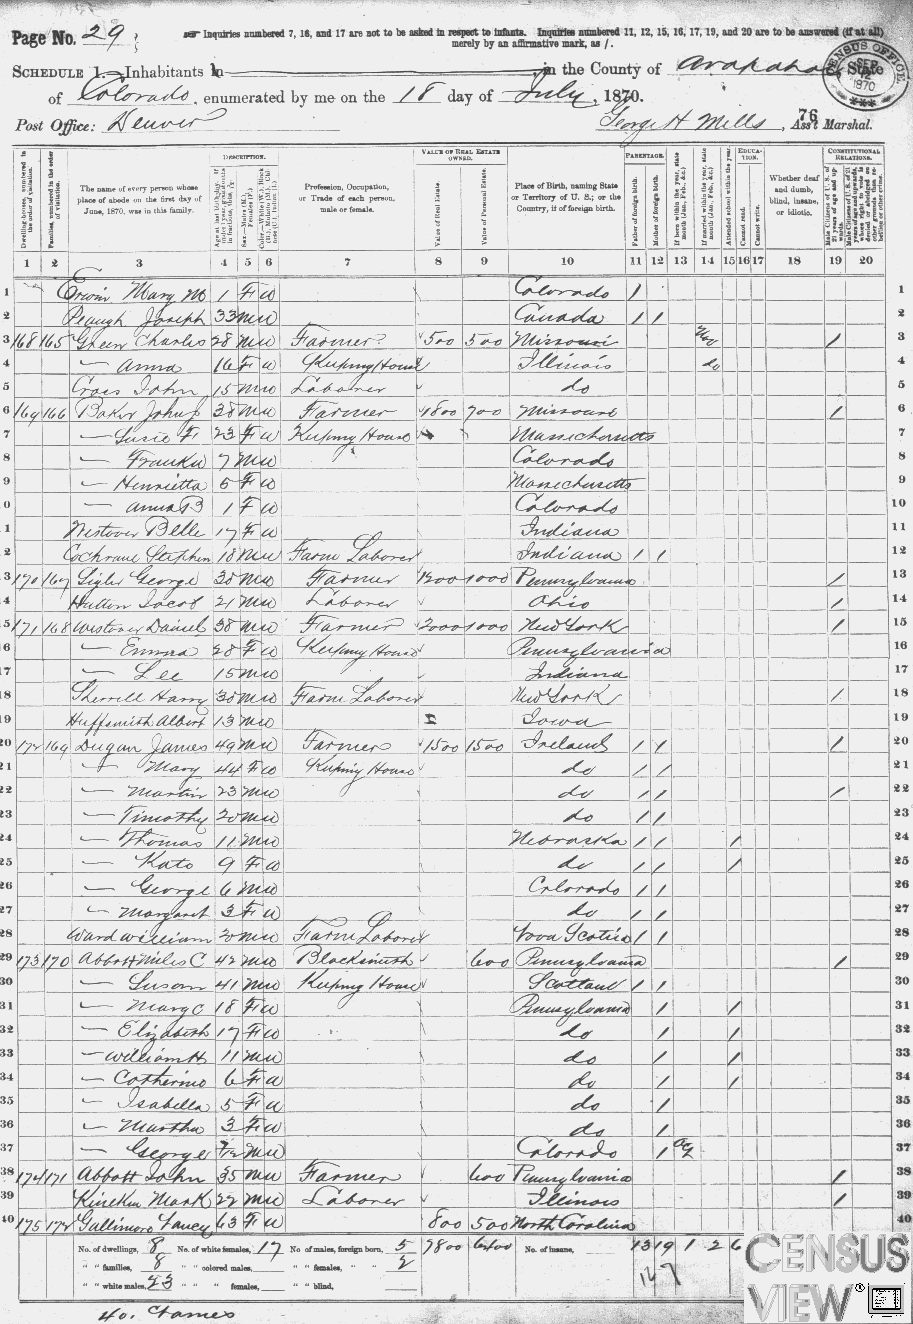 Page No. 29
Inquiries numbered 7, 16, and 17 are not to be asked in respect to infants. Inquiries numbered 11, 12, 15, 16, 17, 19, and 20 are to be answered (if at all)
merely by an affirmative mark, as /.
SCHEDULE 1.—Inhabitants in , in the County of Arapahoe, State
of Colorado, enumerated by me on the 18 day of July, 1870.
CENSUS OFFICE SEP 12 1870
Post Office: Denver George H Mills, Ass't Marshal.
76
DESCRIPTION. VALUE OF REAL ESTATE OWNED. PARENTAGE. EDUCATION. CONSTITUTIONAL RELATIONS.
Dwelling-houses, numbered in the order of visitation.
Families, numbered in the order of visitation.
The name of every person whose place of abode on the first day of June, 1870, was in this family.
Profession, Occupation, or Trade of each person, male or female.
Value of Real Estate.
Value of Personal Estate.
Place of Birth, naming State or Territory of U. S.; or the Country, if of foreign birth.
Father of foreign birth.
Mother of foreign birth.
Attended school within the year.
Cannot read.
Cannot write.
Whether deaf and dumb, blind, insane, or idiotic.
1 2 3 4 5 6 7 8 9 10 11 12 13 14 15 16 17 18 19 20
1 Erwin Mary M 1 F W Colorado / 1
2 Peaugh Joseph 33 M W Canada / / 2
3 168 165 Green Charles 28 M W Farmer 500 500 Missouri / 3
4 — Anna 16 F W Keeping House Illinois do 4
5 Crois John 15 M W Laborer do 5
6 169 166 Baker John 38 M W Farmer 1800 700 Missouri / 6
7 — Susie F 23 F W Keeping House Massachusetts 7
8 — 7 M W Colorado 8
9 — Henrietta 5 F W Massachusetts 9
10 — Anna B 1 F W Colorado 10
11 Westover Belle 17 F W Indiana 11
12 Cochrane Stephen 18 M W Farm Laborer Indiana / / 12
13 170 167 Sigler George 30 M W Farmer 1200 1000 Pennsylvania / 13
14 Hutton Jacob 21 M W Laborer Ohio / 14
15 171 168 Westover Daniel 38 M W Farmer 2000 1000 New York / 15
16 — Emma 28 F W Keeping House Pennsylvania 16
17 — Lee 15 M W Indiana 17
18 Sherrill Harry 30 M W Farm Laborer New York / 18
19 Huffsmith Albert 13 M W Iowa 19
20 172 169 Dugan James 49 M W Farmer 1500 1500 Ireland / / / 20
21 — Mary 44 F W Keeping House do / / 21
22 — Martin 23 M W do / / / 22
23 — Timothy 20 M W do / / 23
24 — Thomas 11 M W Nebraska / / / 24
25 — Kate 9 F W do / / / 25
26 — George 6 M W Colorado / / 26
27 — Margaret 3 F W do / / 27
28 Ward William 20 M W Farm Laborer Nova Scotia / / 28
29 173 170 Abbott Miles C. 42 M W Blacksmith 600 Pennsylvania / 29
30 — Susan 41 M W Keeping House Scotland / / 30
31 — Mary C 18 F W Pennsylvania / / 31
32 — Elizabeth 17 F W do / / 32
33 — William H 11 M W do / / 33
34 — Catherine 6 F W do / / 34
35 — Isabella 5 F W do / 35
36 — Martha 3 F W do / 36
37 — George M W Colorado / 37
38 174 171 Abbott John 35 M W Farmer 600 Pennsylvania / 38
39 Mark 22 M W Laborer Illinois / 39
40 175 172 Gallimore Fancy 63 F W 800 500 North Carolina 40
No. of dwellings, 8 No. of white females, 17 No. of males, foreign born, 5 9800 6400 No. of insane, 13 19 1 2 6
" " families, 8 " " colored males, " " females, " " 2
" " white males, 23 " " " females, " " blind,
40. Names
CENSUS
VIEW®